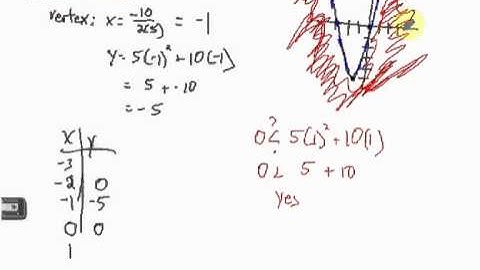 vertex: x = -10/2(5) = -1
y = 5(-1)² + 10(-1)
= 5 + -10
= -5
x | y
-3
-2 | 0
-1 | -5
0 | 0
1
?
0 < 5(1)² + 10(1)
0 < 5 + 10
yes